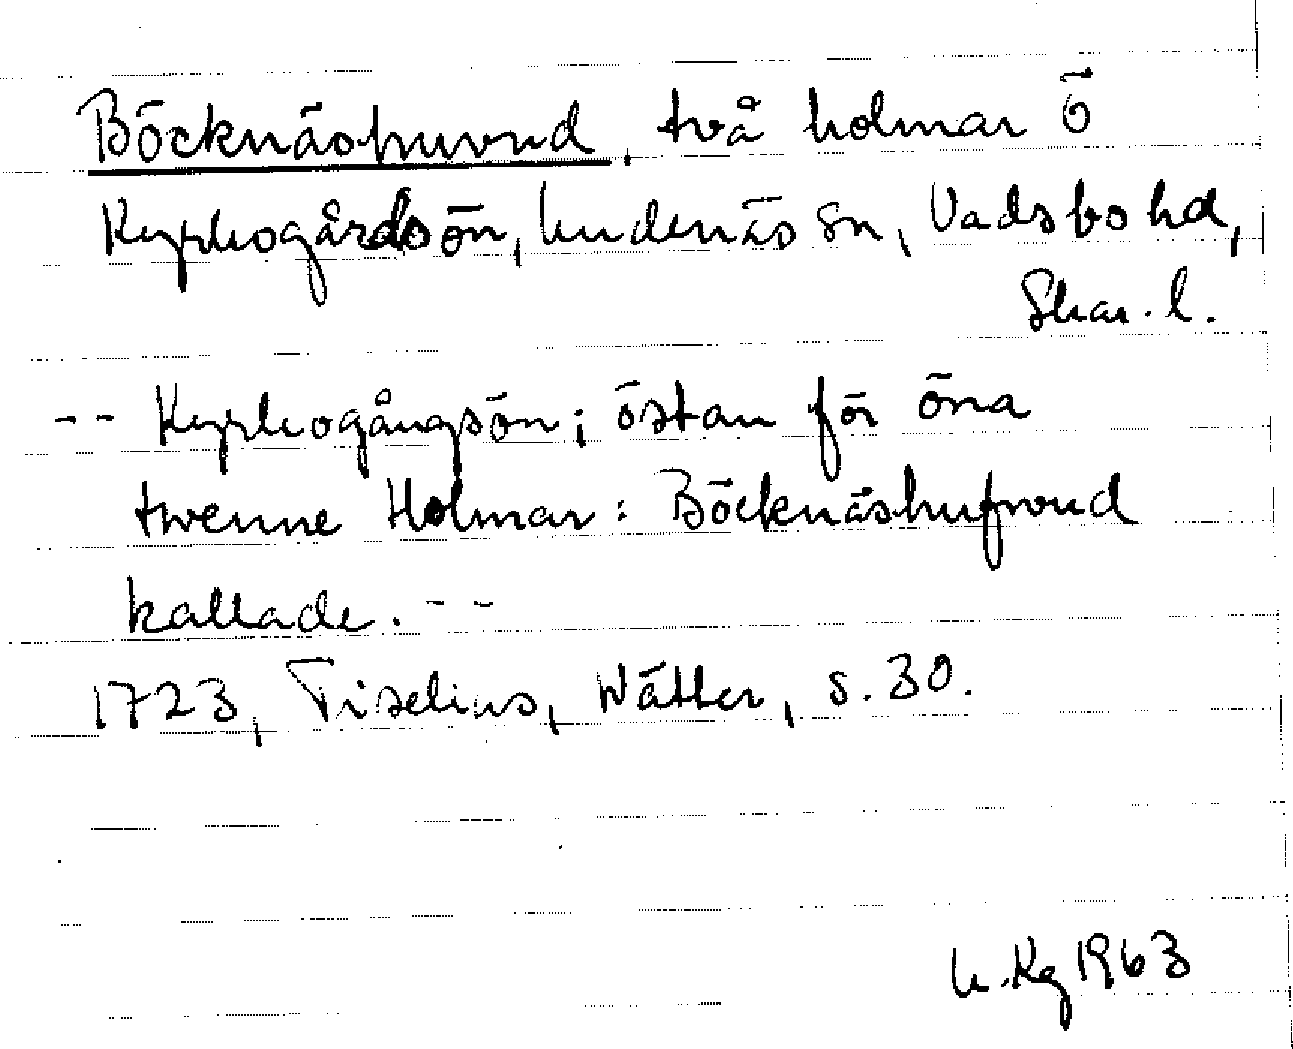 Böcknäshuvud, två holmar Ö
Kyrkogårdsön, Undenäs sn, Vadsbo hd,
Skar. l.
-- Kyrkogångsön; östan för öna
twenne Holmar: Böcknäshufwud
kallade. --
1723, Tiselius, Wätter, s. 30.
U. Kg 1963